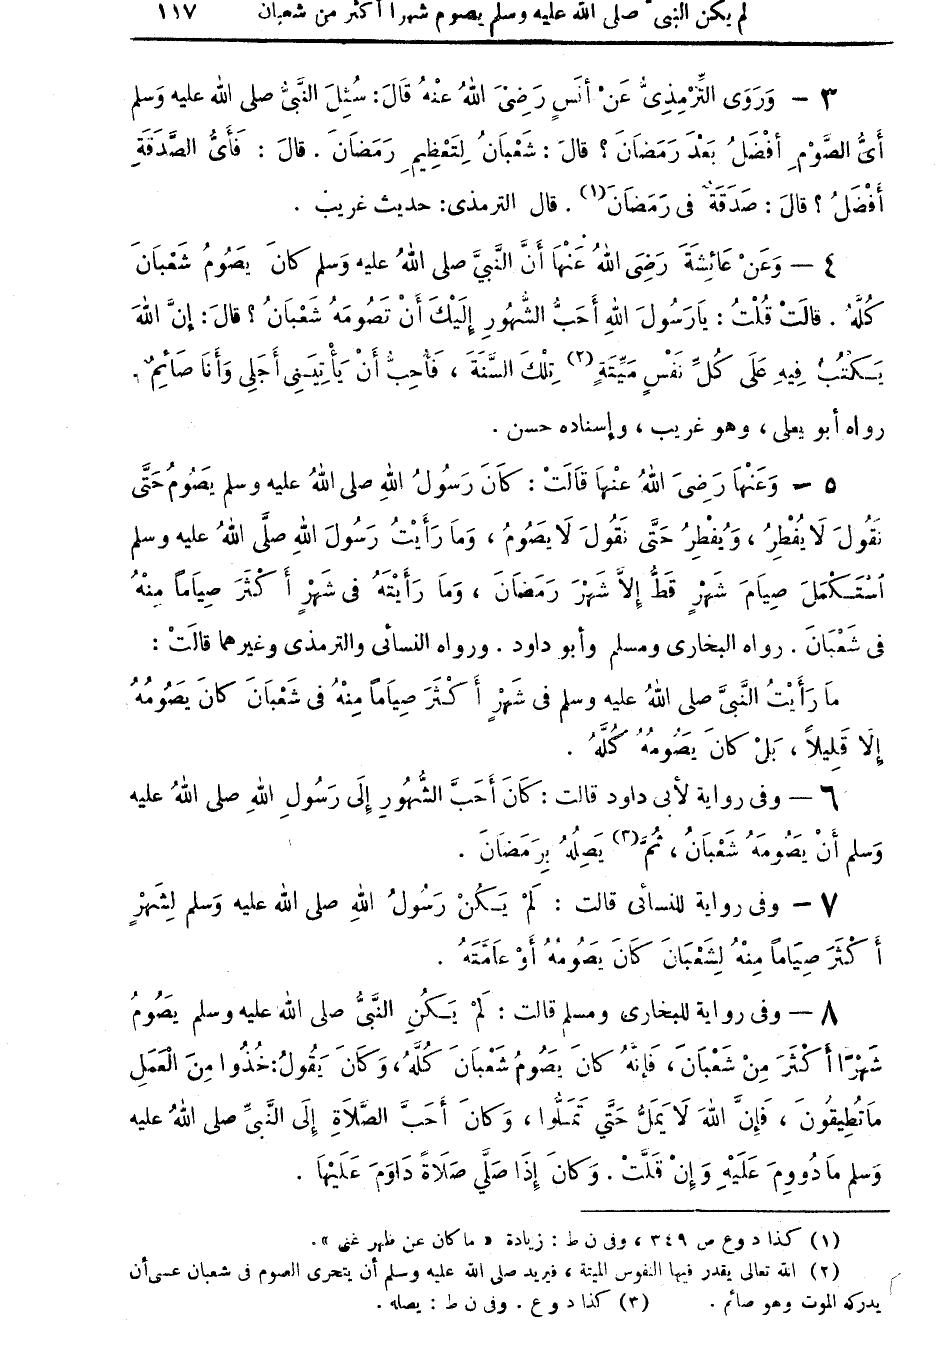 لم يكن النبي صلى الله عليه وسلم يصوم شهرا أكثر من شعبان ١١٧
٣ — وَرَوَى التِّرْمِذِىُّ عَنْ أَنَسٍ رَضِىَ اللهُ عَنْهُ قَالَ: سُئِلَ النَّبِىُّ صلى الله عليه وَسلم
أَىُّ الصَّوْمِ أَفْضَلُ بَعْدَ رَمَضَانَ ؟ قالَ : شَعْبَانُ لِتَعْظِيمِ رَمَضَانَ . قالَ : فَأَىُّ الصَّدَقَةِ
أَفْضَلُ ؟ قالَ : صَدَقَةٌ فى رَمَضَانَ (١) . قال الترمذى: حديث غريب .
٤ — وَعَنْ عَائِشَةَ رَضِىَ اللهُ عَنْهَا أَنَّ النَّبِيَّ صلى اللهُ عليه وَسلم كانَ يَصُومُ شَعْبَانَ
كُلَّهُ . قالَتْ قُلْتُ : يارَسُولَ اللهِ أَحَبُّ الشُّهُورِ إِلَيْكَ أَنْ تَصُومَهُ شَعْبَانُ ؟ قالَ : إِنَّ اللهَ
يَكْتُبُ فِيهِ عَلَى كُلِّ نَفْسٍ مَيِّتَةٍ (٢) تِلْكَ السَّنَةَ ، فَأُحِبُّ أَنْ يَأْتِيَنِى أَجَلِى وَأَنَا صَائِمٌ .
رواه أبو يعلى ، وهو غريب ، وإسناده حسن .
٥ — وَعَنْهَا رَضِىَ اللهُ عَنْهَا قَالَتْ : كَانَ رَسُولُ اللهِ صلى اللهُ عليه وسلم يَصُومُ حَتَّى
نَقُولَ لَا يُفْطِرُ ، وَيُفْطِرُ حَتَّى نَقُولَ لَا يَصُومُ ، وَمَا رَأَيْتُ رَسُولَ اللهِ صلَّى اللهُ عليه وسلم
اسْتَكْمَلَ صِيَامَ شَهْرٍ قَطُّ إِلاَّ شَهْرَ رَمَضَانَ ، وَمَا رَأَيْتَهُ فى شَهْرٍ أَكْثَرَ صِيَامًا مِنْهُ
فى شَعْبَانَ . رواه البخارى ومسلم وأبو داود . ورواه النسائى والترمذى وغيرهما قالَتْ :
ما رَأَيْتُ النَّبِىَّ صلى اللهُ عليه وسلم فى شَهْرٍ أَكْثَرَ صِيَامًا مِنْهُ فى شَعْبَانَ كَانَ يَصُومُهُ
إِلَّا قَلِيلاً ، بَلْ كانَ يَصُومُهُ كُلَّهُ .
٦ — وفى رواية لأبى داود قالت : كَانَ أَحَبَّ الشُّهُورِ إِلَى رَسُولِ اللهِ صلى اللهُ عليه
وَسلم أَنْ يَصُومَهُ شَعْبَانُ ، ثُمَّ (٣) يَصِلُهُ بِرَمَضَانَ .
٧ — وفى رواية للنسائى قالت : لَمْ يَكُنْ رَسُولُ اللهِ صلى الله عليه وسلم لِشَهْرٍ
أَكْثَرَ صِيَامًا مِنْهُ لِشَعْبَانَ كَانَ يَصُومُهُ أَوْ عَامَّتَهُ .
٨ — وفى رواية للبخارى ومسلم قالت : لَمْ يَكُنِ النَّبِىُّ صلى الله عليه وسلم يَصُومُ
شَهْرًا أَكْثَرَ مِنْ شَعْبَانَ ، فَإِنَّهُ كانَ يَصُومُ شَعْبَانَ كُلَّهُ ، وَكَانَ يَقُولُ: خُذُوا مِنَ الْعَمَلِ
مَا تُطِيقُونَ ، فَإِنَّ اللهَ لَا يَمَلُّ حَتَّى تَمَلُّوا ، وَكانَ أَحَبَّ الصَّلَاةِ إِلَى النَّبِىِّ صلى اللهُ عليه
وَسلم مادُووِمَ عَلَيْهِ وَإِنْ قَلَّتْ . وَكَانَ إِذَا صَلَّى صَلَاةً دَاوَمَ عَلَيْهَا .
(١) كذا د وع ص ٣٤٩ ، وفى ن ط : زيادة « ما كان عن ظهر غنى » .
(٢) الله تعالى يقدر فيها النفوس الميتة ، فيريد صلى الله عليه وسلم أن يتحرى الصوم فى شعبان عسى أن
يدركه الموت وهو صائم . (٣) كذا د وع . وفى ن ط : يصله .